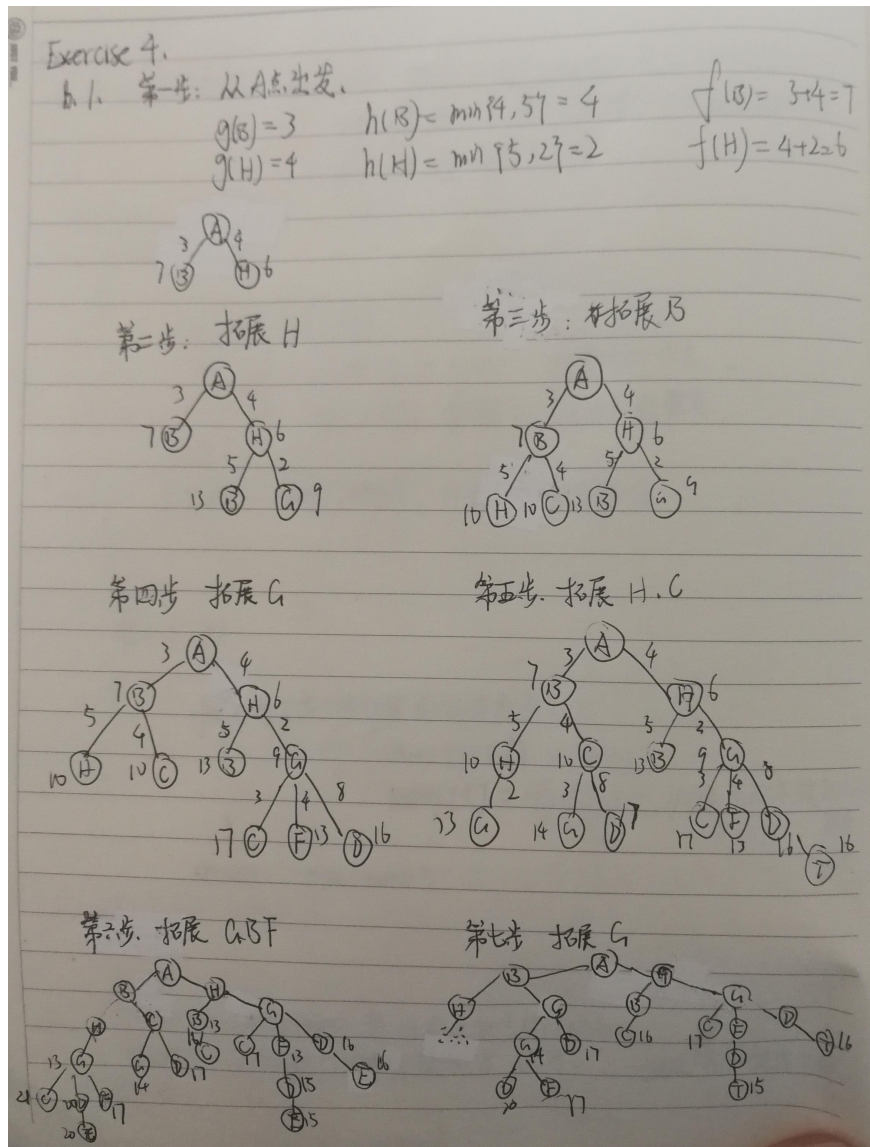 Exercise 4.
b.1. 第一步: 从A点出发.
g(B)=3 h(B)=min{4,5}=4 f(B)=3+4=7
g(H)=4 h(H)=min{5,2}=2 f(H)=4+2=6
A
3 4
7 B H 6
第二步: 拓展 H
A
3 4
7 B H 6
5 2
13 B G 9
第三步: 拓展 B
A
3 4
7 B H 6
5 4 5 2
10 H 10 C 13 B G 9
第四步 拓展 G
A
3 4
7 B H 6
5 4 5 2
10 H 10 C 13 B 9 G
3 4 8
17 C F 13 D 16
第五步. 拓展 H.C
A
3 4
7 B H 6
5 4 5 2
10 H 10 C 13 B 9 G
2 3 8 3 4 8
13 G 14 G D 17 C F D
17 13 16 16
T
第六步. 拓展 GBF
A
B H
H C B 13 G
13 G G D 17 C C 17 F 13 D 16
14
21 C 20 D F 17 D 15 16
20 15
第七步 拓展 G
A
B H
H C B G
G 14 D 17 C 16 17 C F D
D F D T 16
20 17 T 15